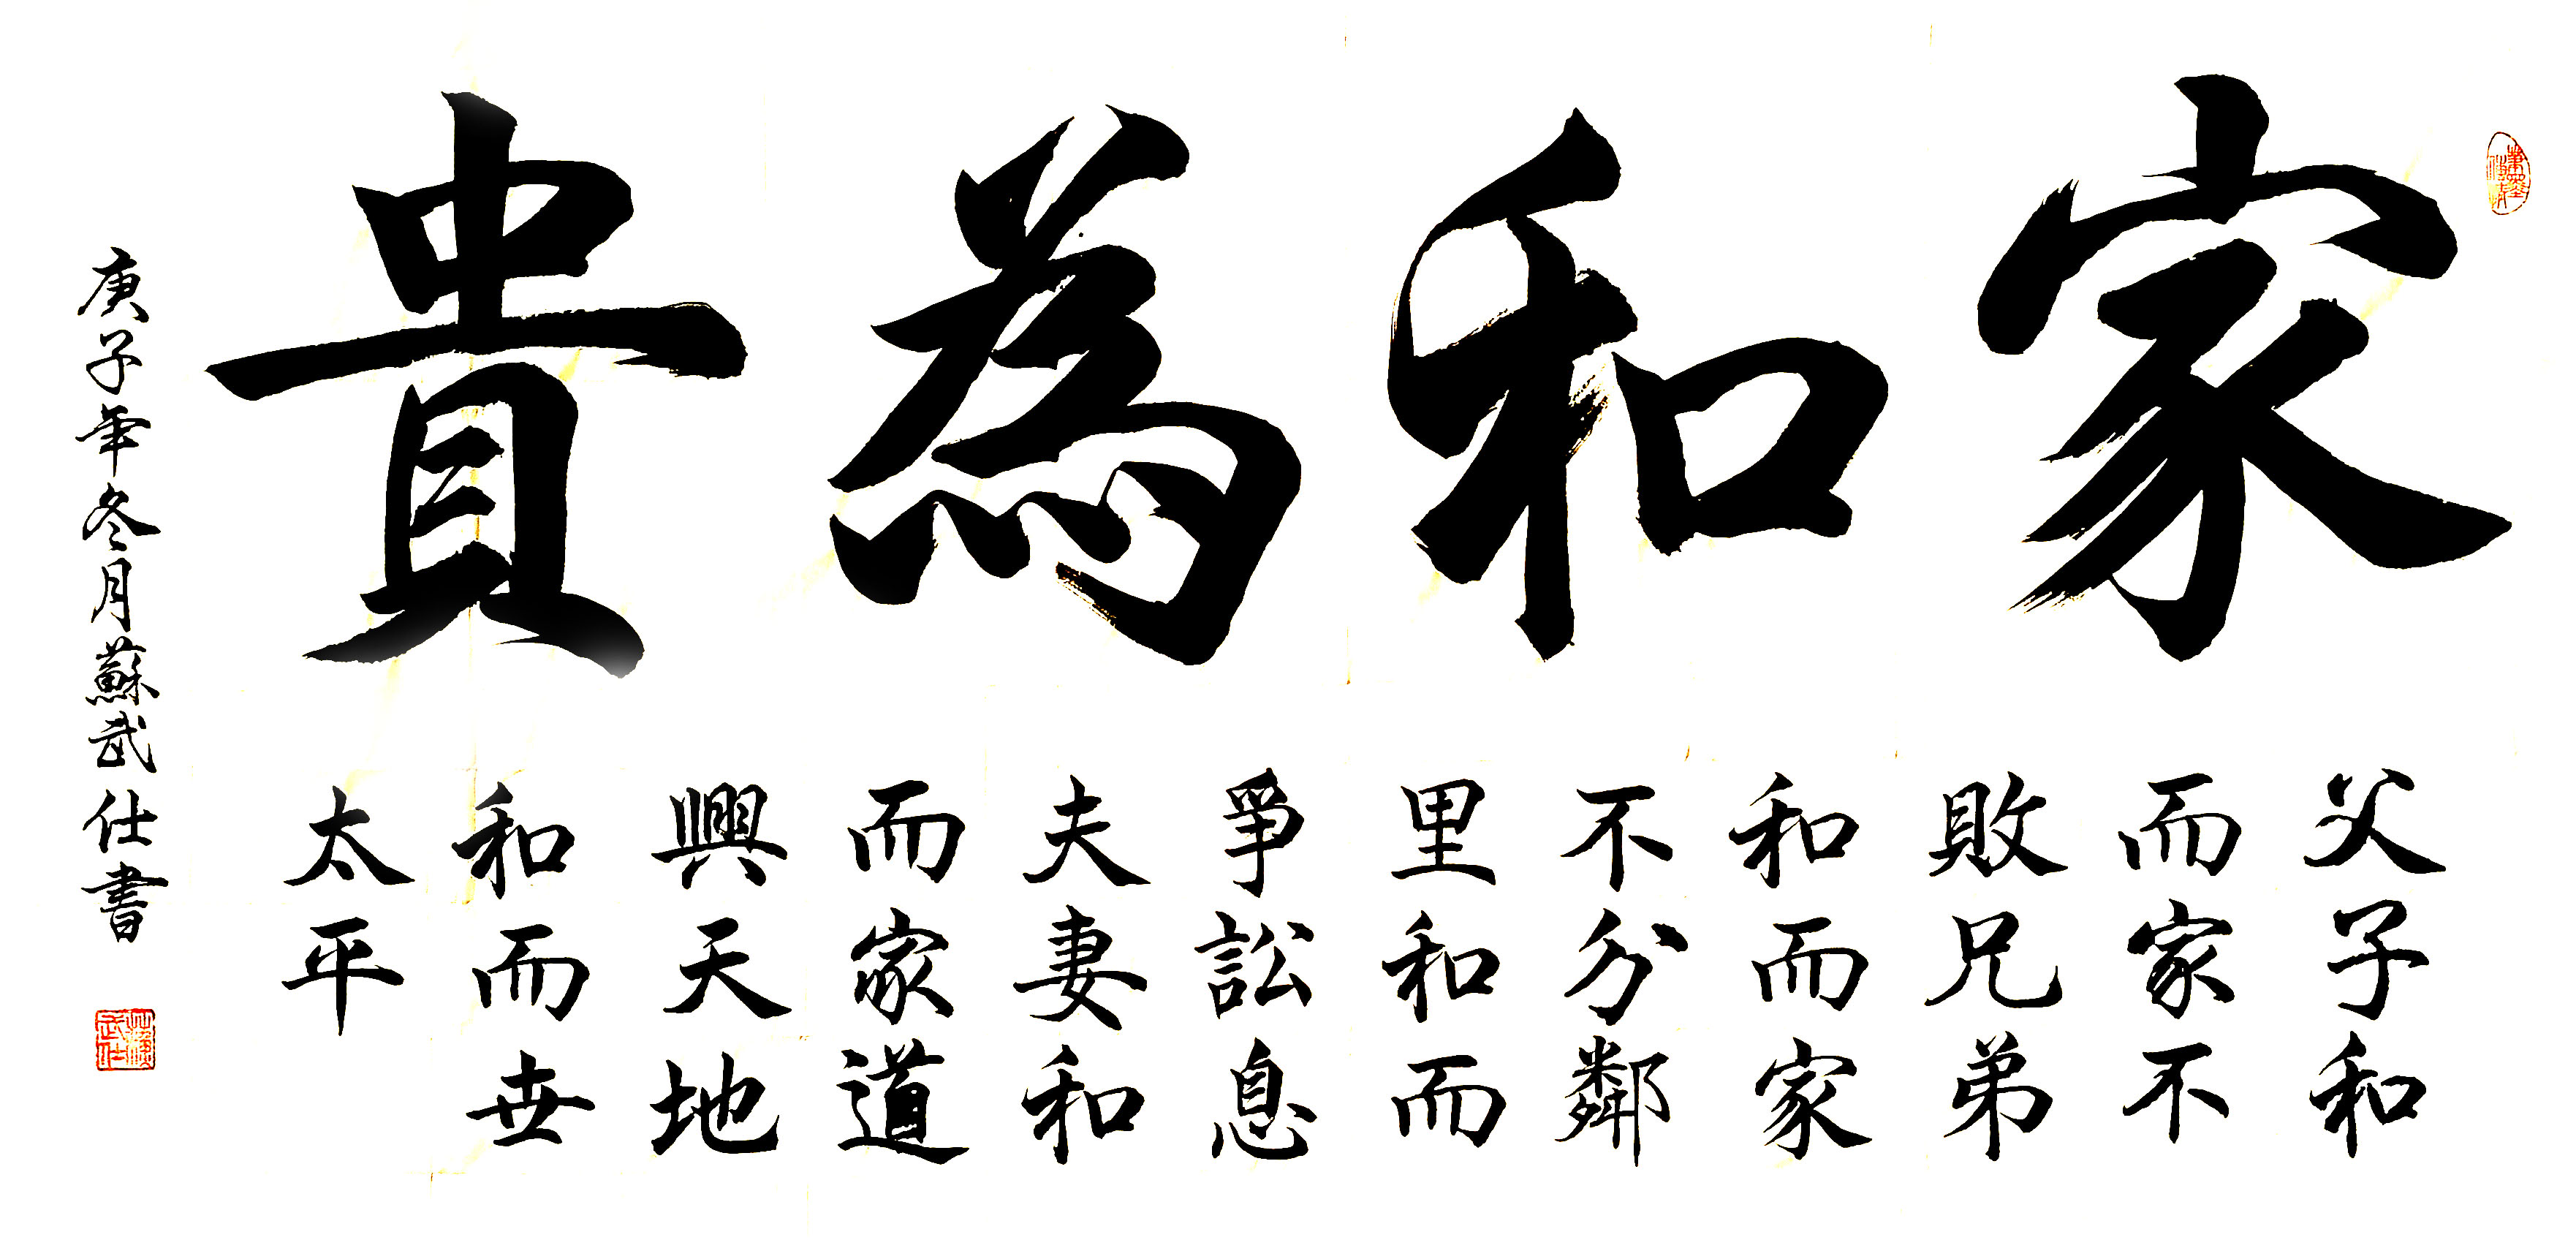 家和為貴
父子和
而家不
敗兄弟
和而家
不分鄰
里和而
爭訟息
夫妻和
而家道
興天地
和而世
太平
庚子年冬月蘇武仕書
蘇武仕